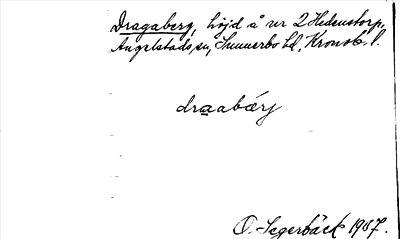 Dragaberg, höjd å nr 2 Hedenstorp,
Angelstads sn, Sunnerbo hd, Kronob. l.
draabærj
O. Segerbäck 1907.